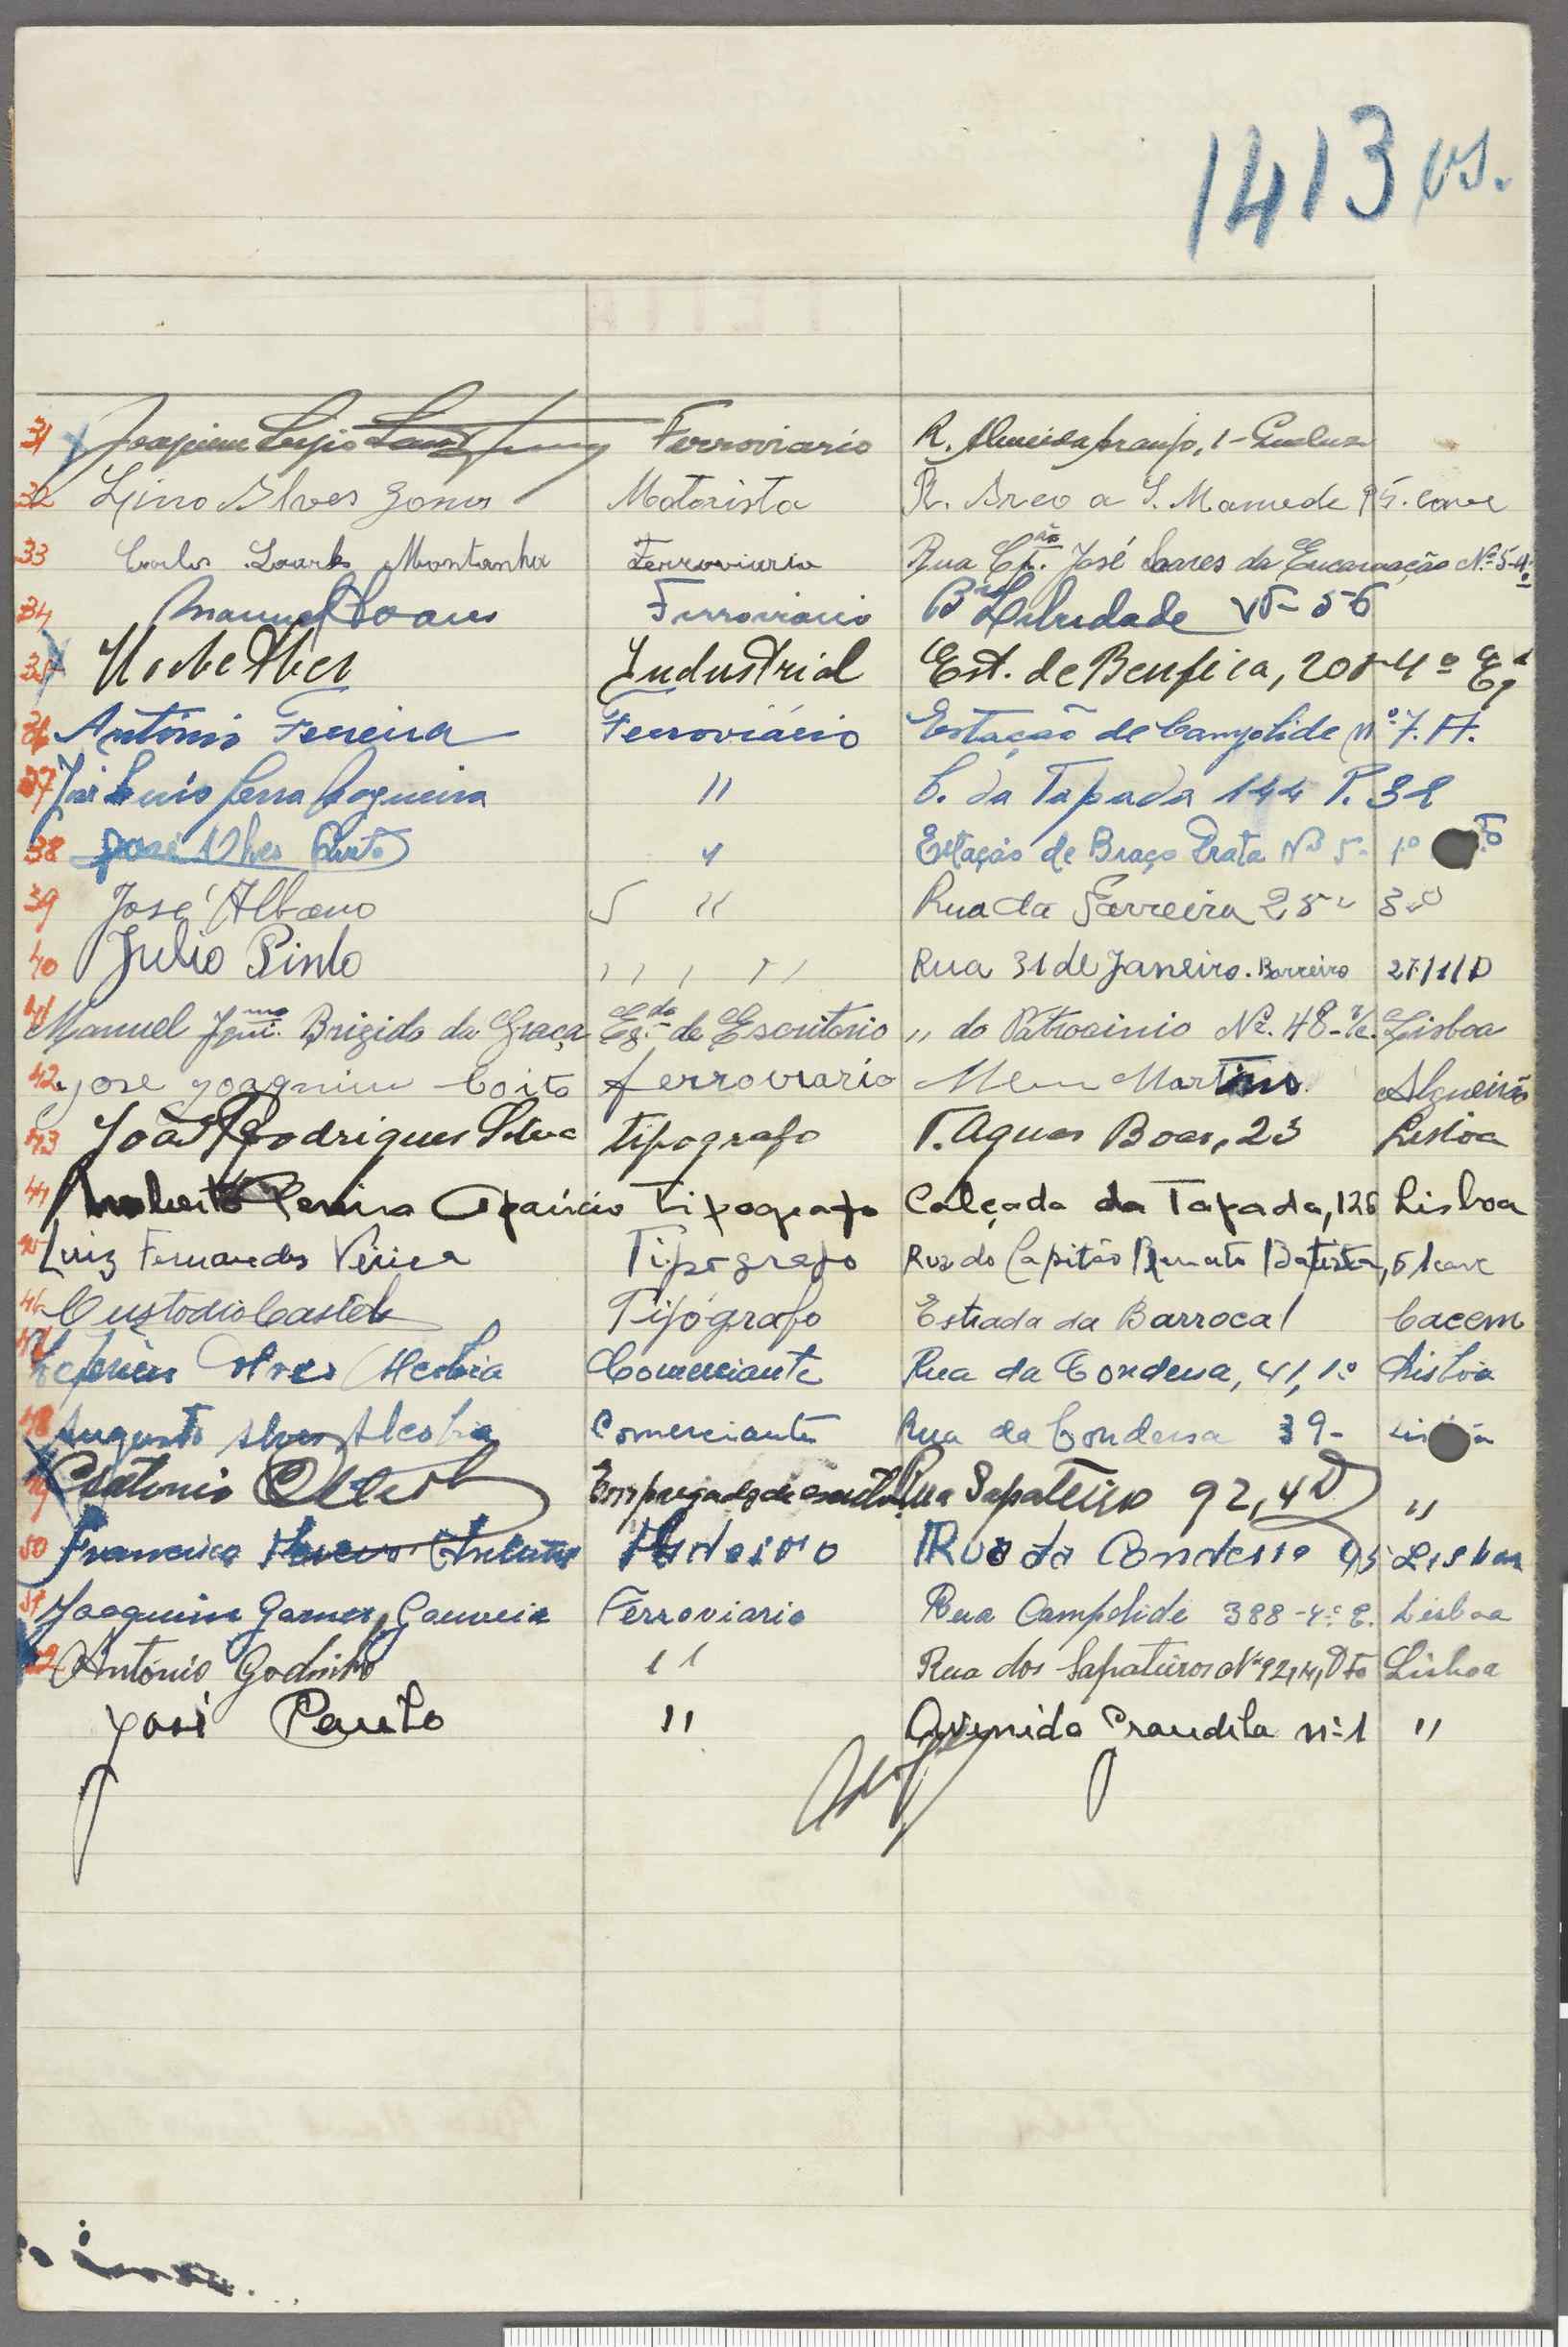 1413 vs.
31 Joaquim Ferroviario R. Almeida Araujo, 1-
32 Lino Alves Gomes Motorista R. Arco a S. Mamede 95. cave
33 Carlos Montanha Ferroviario Rua Cp.ão José Soares da Encarnação Nº 5-4º
34 Manuel Soares Ferroviario Bº Liberdade 56
35 Industrial Est. de Benfica, 208-4º Eqd
36 António Ferreira Ferroviário Estação de Campolide nº 7. A.
37 José Luís Serra Nogueira " C. da Tapada 144 P. 32
38 José Alves " Estação de Braço Prata Nº 5- 1º
39 José Albano " Rua da 25- 3º
40 Julio Pinto " " Rua 31 de Janeiro. Barreiro 27/1/D
41 Manuel Jqui.mo Brigido da Graça Eg.do de Escritorio " do Patrocinio Nº. 48-r/c. Lisboa
42 José Joaquim Coito ferroviario Mem Martins. Algueirão
43 João Rodrigues Silva tipografo T. Aguas Boas, 23 Lisboa
44 Pereira Aparicio Tipografo Calçada da Tapada, 126 Lisboa
45 Luiz Fernandes Tipografo Rua do Capitão Renato Batista, 51 cave
46 Custodio Castelo Tipógrafo Estrada da Barrocal Cacem
47 Alves Alcobia Comerciante Rua da Condessa, 41, 1º Lisboa
48 Augusto Alves Alcobia Comerciante Rua da Condessa 39-
49 Antonio Empregado de escritorio Rua Sapateiro 92, 4º D "
50 Francisco Rua da Condessa Lisboa
51 Joaquim Gomes Gouveia Ferroviario Rua Campolide 388-4º E. Lisboa
52 António Godinho " Rua dos Sapateiros Nº 92, 4, Dto Lisboa
José Pauto " Avenida nº 1 "